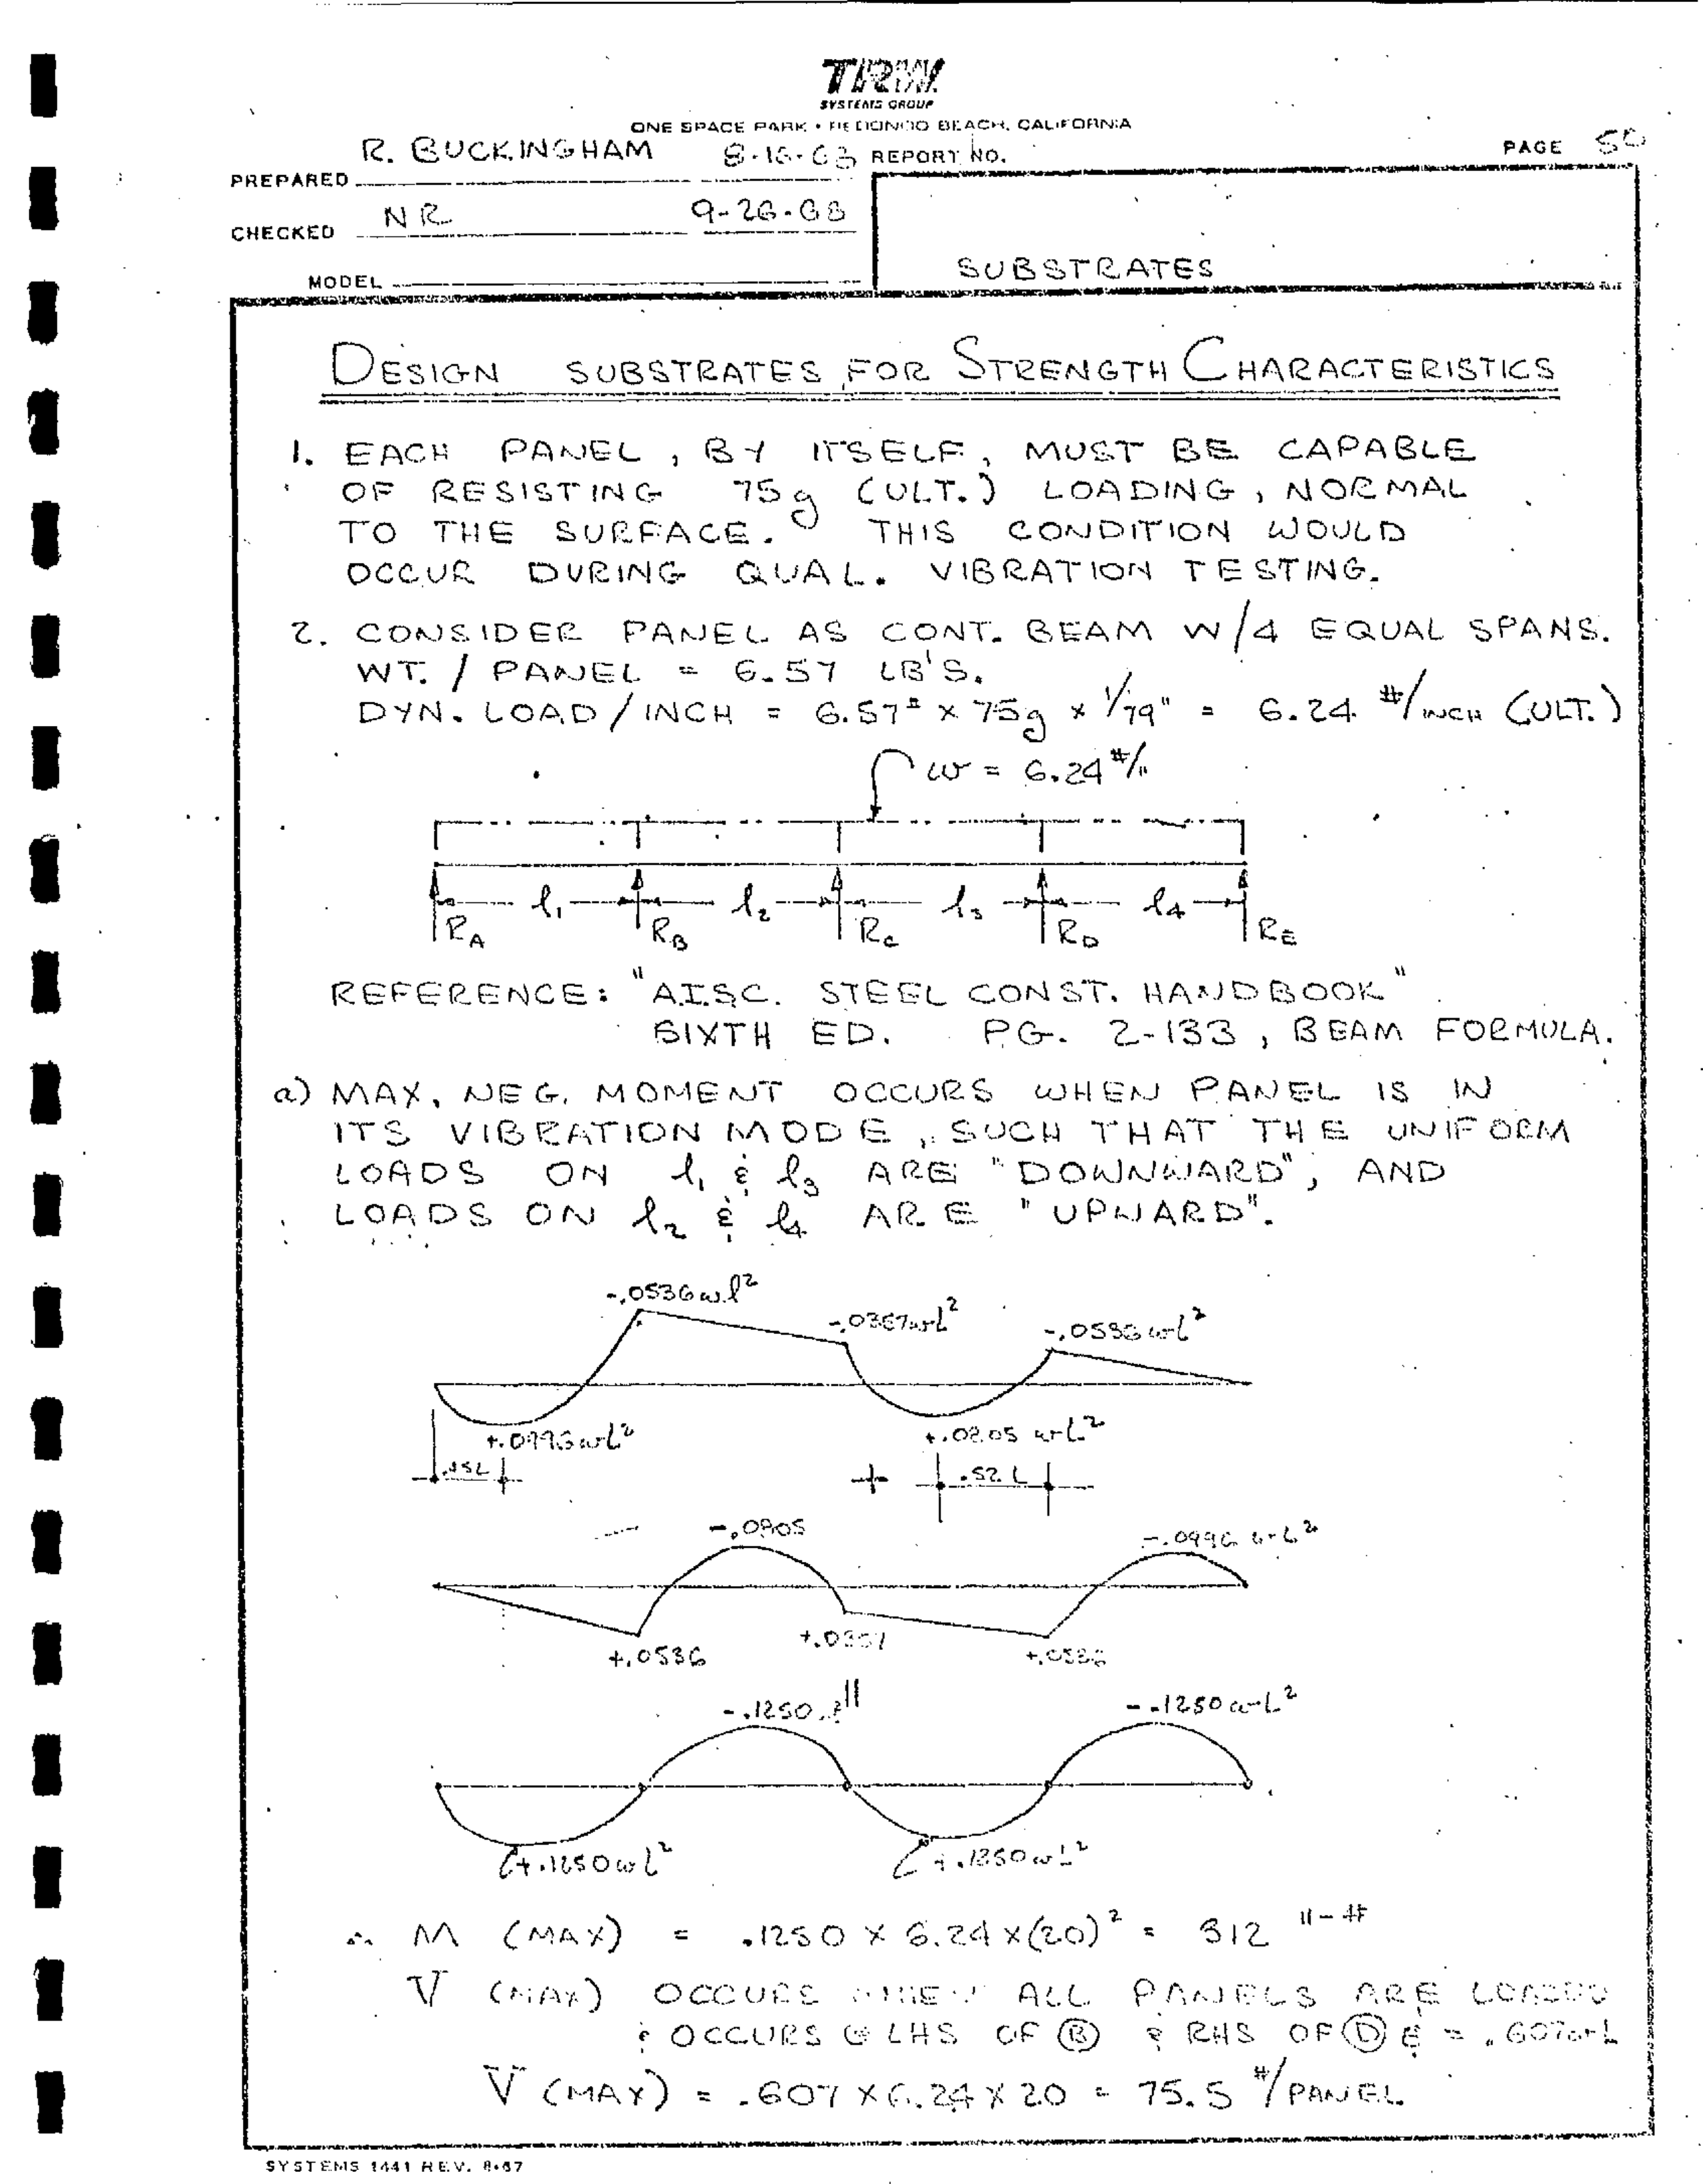 TRW
SYSTEMS GROUP
ONE SPACE PARK • REDONDO BEACH, CALIFORNIA
PREPARED R. BUCKINGHAM REPORT NO. PAGE
CHECKED NR 9-26-68
MODEL
SUBSTRATES
DESIGN SUBSTRATES FOR STRENGTH CHARACTERISTICS
1. EACH PANEL, BY ITSELF, MUST BE CAPABLE
OF RESISTING 75g (ULT.) LOADING, NORMAL
TO THE SURFACE. THIS CONDITION WOULD
OCCUR DURING QUAL. VIBRATION TESTING.
2. CONSIDER PANEL AS CONT. BEAM W/4 EQUAL SPANS.
WT. / PANEL = 6.57 LB'S.
DYN. LOAD/INCH = 6.57# x 75g x 1/79" = 6.24 #/INCH (ULT.)
w = 6.24 #/"
l1 l2 l3 l4
RA RB RC RD RE
REFERENCE: "A.I.S.C. STEEL CONST. HANDBOOK"
SIXTH ED. PG. 2-133, BEAM FORMULA.
a) MAX. NEG. MOMENT OCCURS WHEN PANEL IS IN
ITS VIBRATION MODE, SUCH THAT THE UNIFORM
LOADS ON l1 & l3 ARE "DOWNWARD", AND
LOADS ON l2 & l4 ARE "UPWARD".
-.0536wl²
-.0357wL² -.0536wL²
+.0996wL² +.0805wL²
.45L + .52L
-.0805 -.0996wL²
+.0536 +.0357 +.0536
-.1250 " -.1250wL²
+.1250wL² +.1250wL²
∴ M (MAX) = .1250 x 6.24 x (20)² = 312 "-#
V (MAX) OCCURS WHEN ALL PANELS ARE LOADED
& OCCURS @ LHS OF B & RHS OF D & = .607wL
V (MAX) = .607 x 6.24 x 20 = 75.5 #/PANEL
SYSTEMS 1441 REV. 8-67